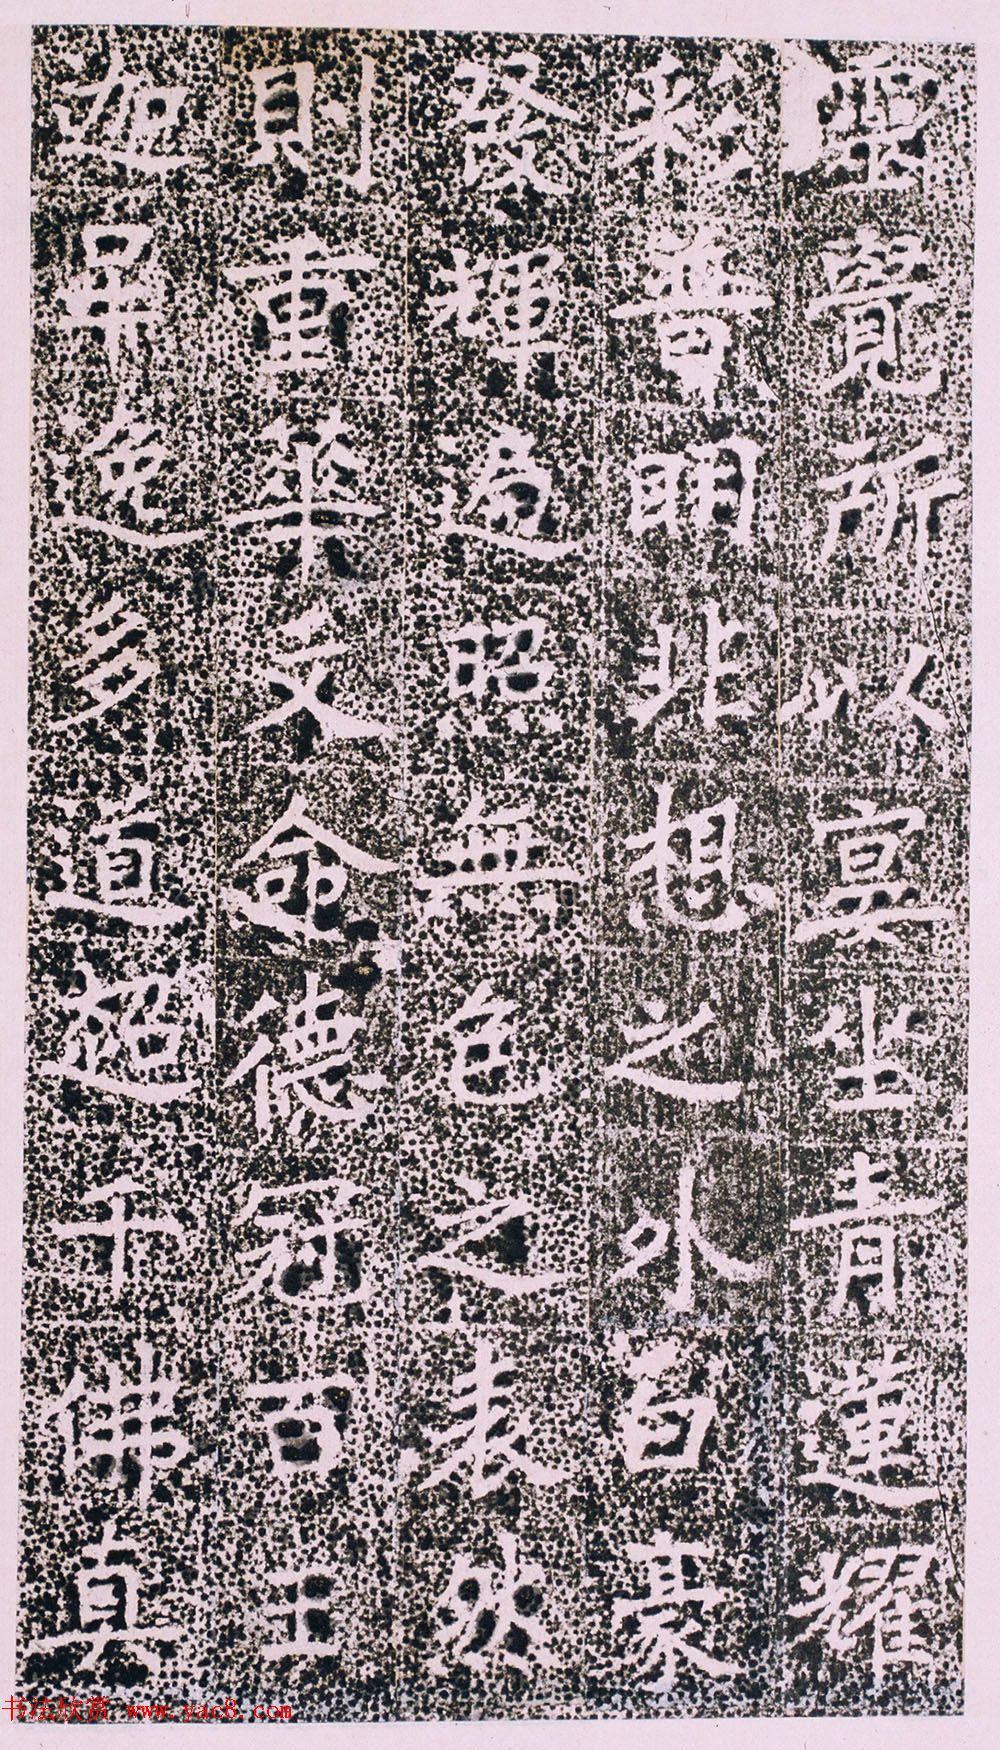 靈覺所以寔坐青蓮耀
彩普明非想之外白豪
發輝遠昭無色之表然
則重華文命德冠百王
迦葉逸多道超千佛真
书法欣赏 www.yac8.com